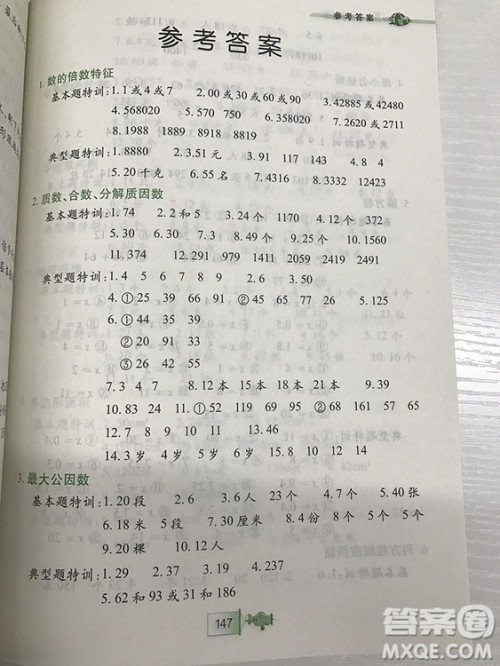 参考答案
参考答案
1.数的倍数特征
基本题特训:1.1或4或7 2.00或30或60或90 3.42885或42480
4.568020 5.570 750 6.358020 7.2610
8.1988 1889 8918 8819
典型题特训:1.8880 2.3.51元 3.91 117 143 4.11115
5.20千克 6.55名 7.34317 8.12423
2.质数、合数、分解质因数
基本题特训:1.74 2.2和5 3.24个 1170 4.12个 372
5.30 6.30 7.29 8.49 9.25个 10.1560
11.374 12.291 429 473 611 793
典型题特训:1.4 5 6 7 8 9 2.6 3.50
4.①25 39 66 91 ②45 26 49 5.125
6.①44 35 39
②20 91 33
③26 42 55
7.3 4 7 8.12本 15本 21本 9.39
10.83 24 11.①69 85 154 ②68 161 57
12.7 8 9 10 11 13.46
14.3岁 4岁 5岁 6岁 15.54
3.最大公因数
基本题特训:1.20段 2.6 3.6人 23个 4.7个 5.40张
6.18米 5段 7.30厘米 8.90块
9.20棵 10.12人
典型题特训:1.29 2.37 3.19 4.237
5.62和93或31和186
147
答案圈
MXQE.COM